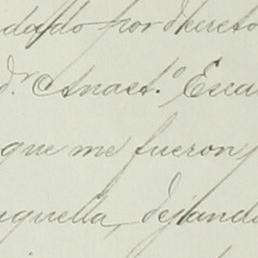 dado por dhereto
dr Anastº Esca
que me fueron
aquella, dejando